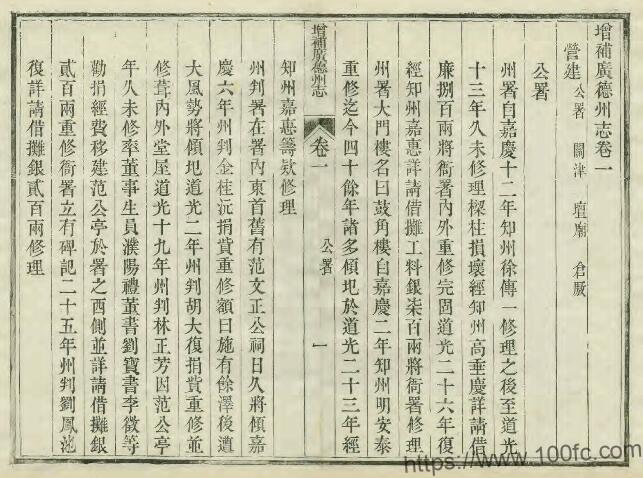 增補廣德州志卷一
營建 公署 關津 壇廟 倉厫
公署
州署自嘉慶十二年知州徐傳一修理之後至道光
十三年久未修理樑柱損壞經知州高垂慶詳請借
廉捌百兩將衙署內外重修完固道光二十六年復
經知州嘉惠詳請借攤工料銀柒百兩將衙署修理
州署大門樓名曰鼓角樓自嘉慶二年知州明安泰
重修迄今四十餘年諸多傾圯於道光二十三年經
增補廣德州志 卷一 公署 一
知州嘉惠籌欵修理
州判署在署內東首舊有范文正公祠日久將傾嘉
慶六年州判金桂沅捐貲重修額曰施有餘澤後遭
大風勢將傾圯道光二年州判胡大復捐貲重修並
修葺內外堂屋道光十九年州判林正芳因范公亭
年久未修率董事生員濮陽禮董書劉寶書李徵等
勸捐經費移建范公亭於署之西側並詳請借攤銀
貳百兩重修衙署立有碑記二十五年州判劉鳳池
復詳請借攤銀貳百兩修理
https://www.100fc.com